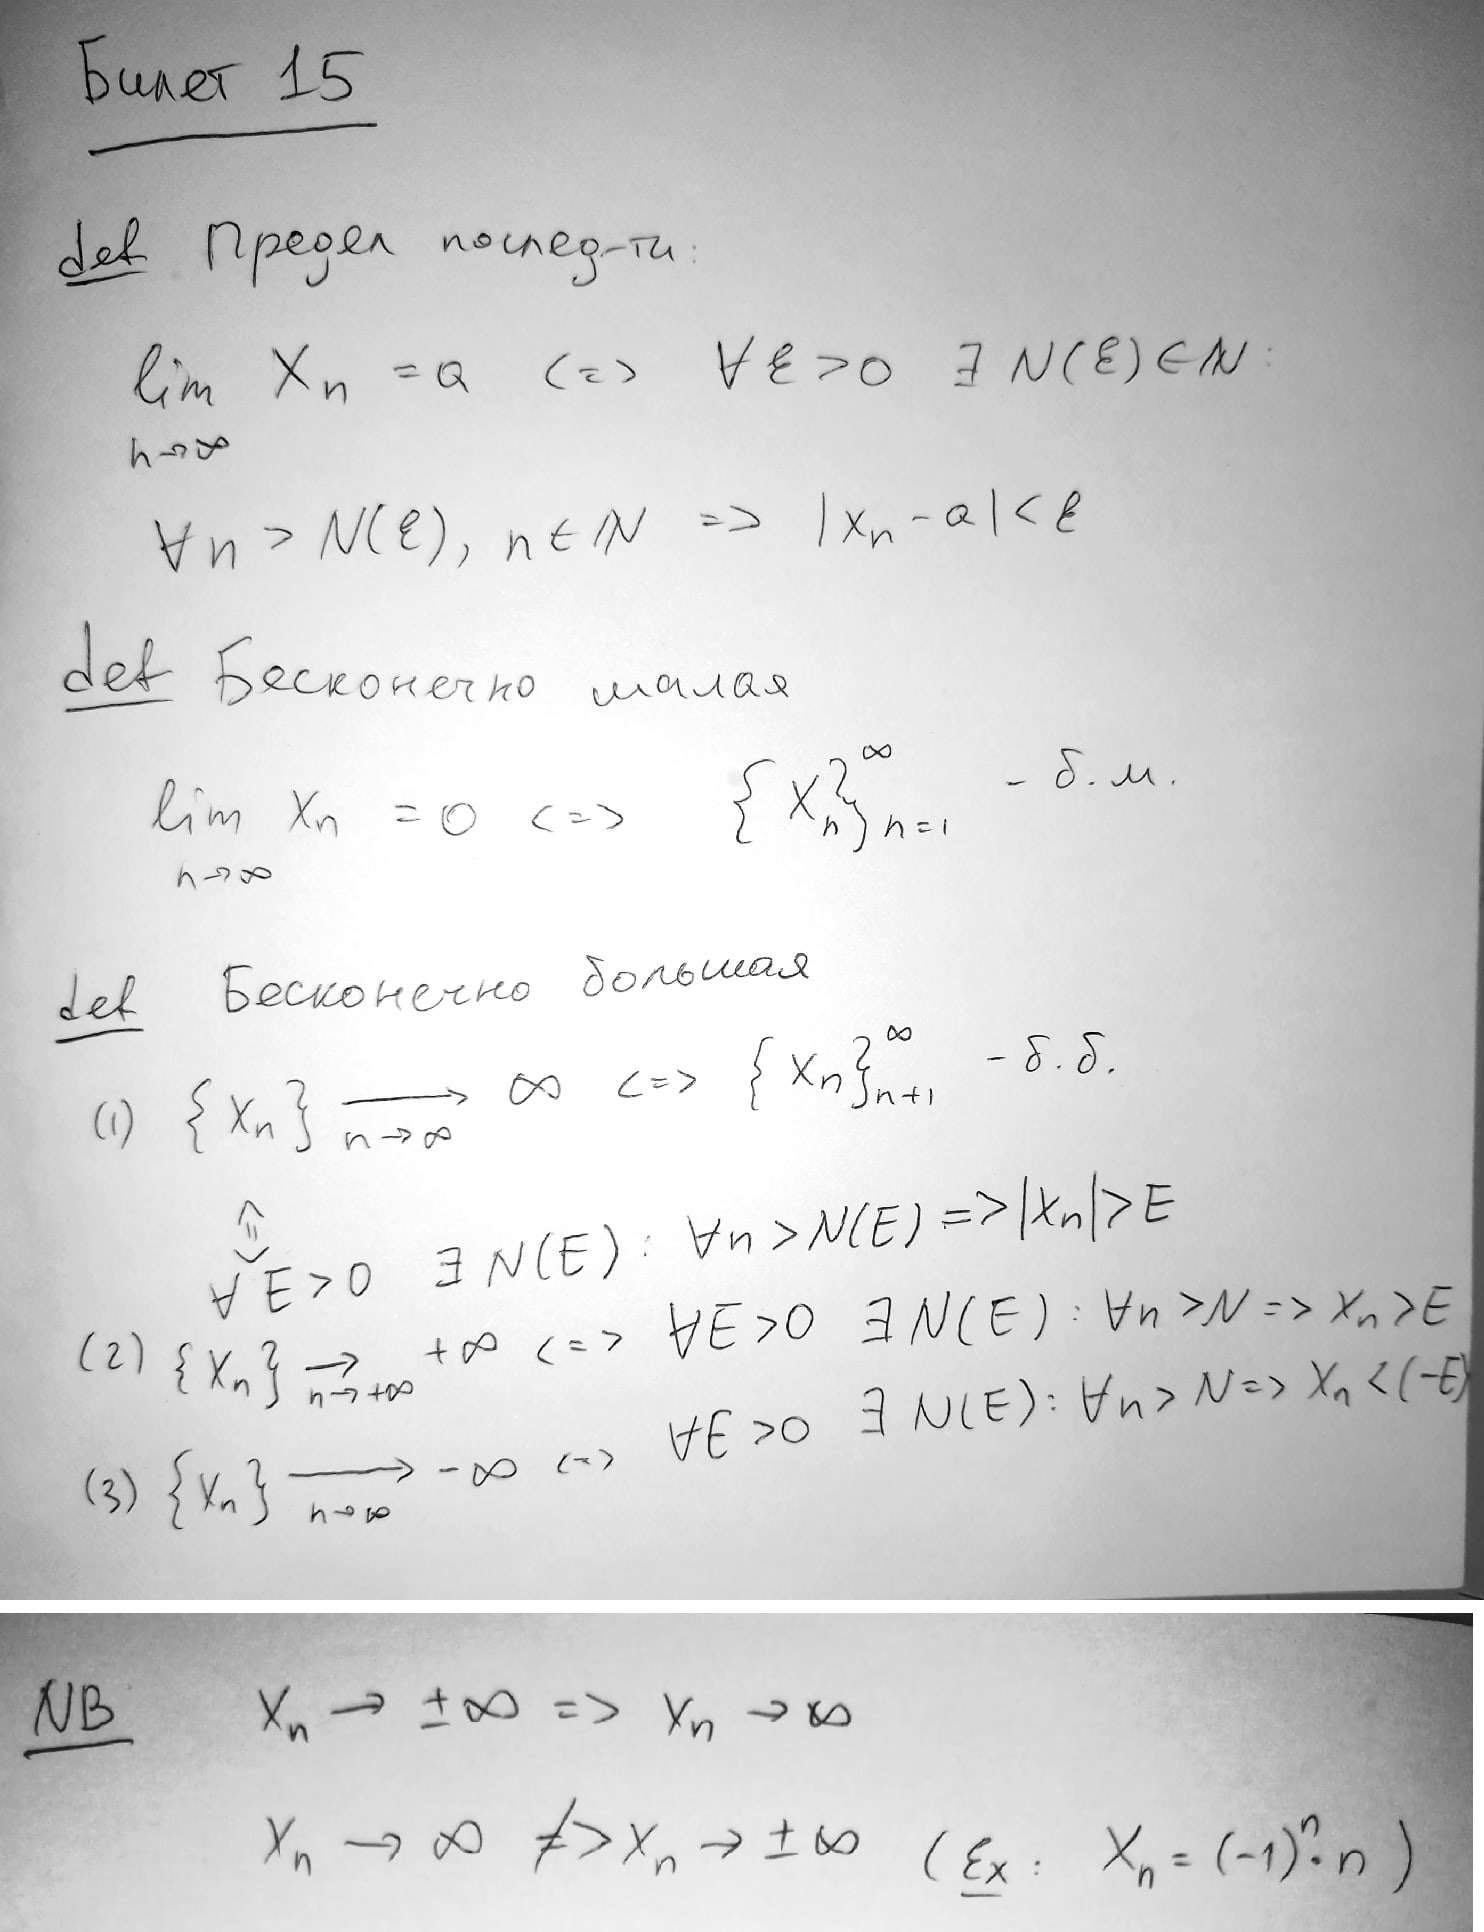 Билет 15
def Предел послед-ти:
lim Xn = a <=> ∀ε>0 ∃ N(ε)∈ℕ:
n→∞
∀n > N(ε), n∈ℕ => |xn - a| < ε
def Бесконечно малая
lim Xn = 0 <=> {Xn}∞n=1 - б.м.
n→∞
def Бесконечно большая
(1) {Xn} → ∞ <=> {Xn}∞n+1 - б.б.
n→∞
<=>
∀ E>0 ∃ N(E): ∀n > N(E) => |Xn| > E
(2) {Xn} → +∞ <=> ∀E>0 ∃ N(E): ∀n > N => Xn > E
n→+∞
(3) {Xn} → -∞ <=> ∀E>0 ∃ N(E): ∀n > N => Xn < (-E)
n→∞
NB Xn → ±∞ => Xn → ∞
Xn → ∞ ≠> Xn → ±∞ (Ex: Xn = (-1)ⁿ·n)